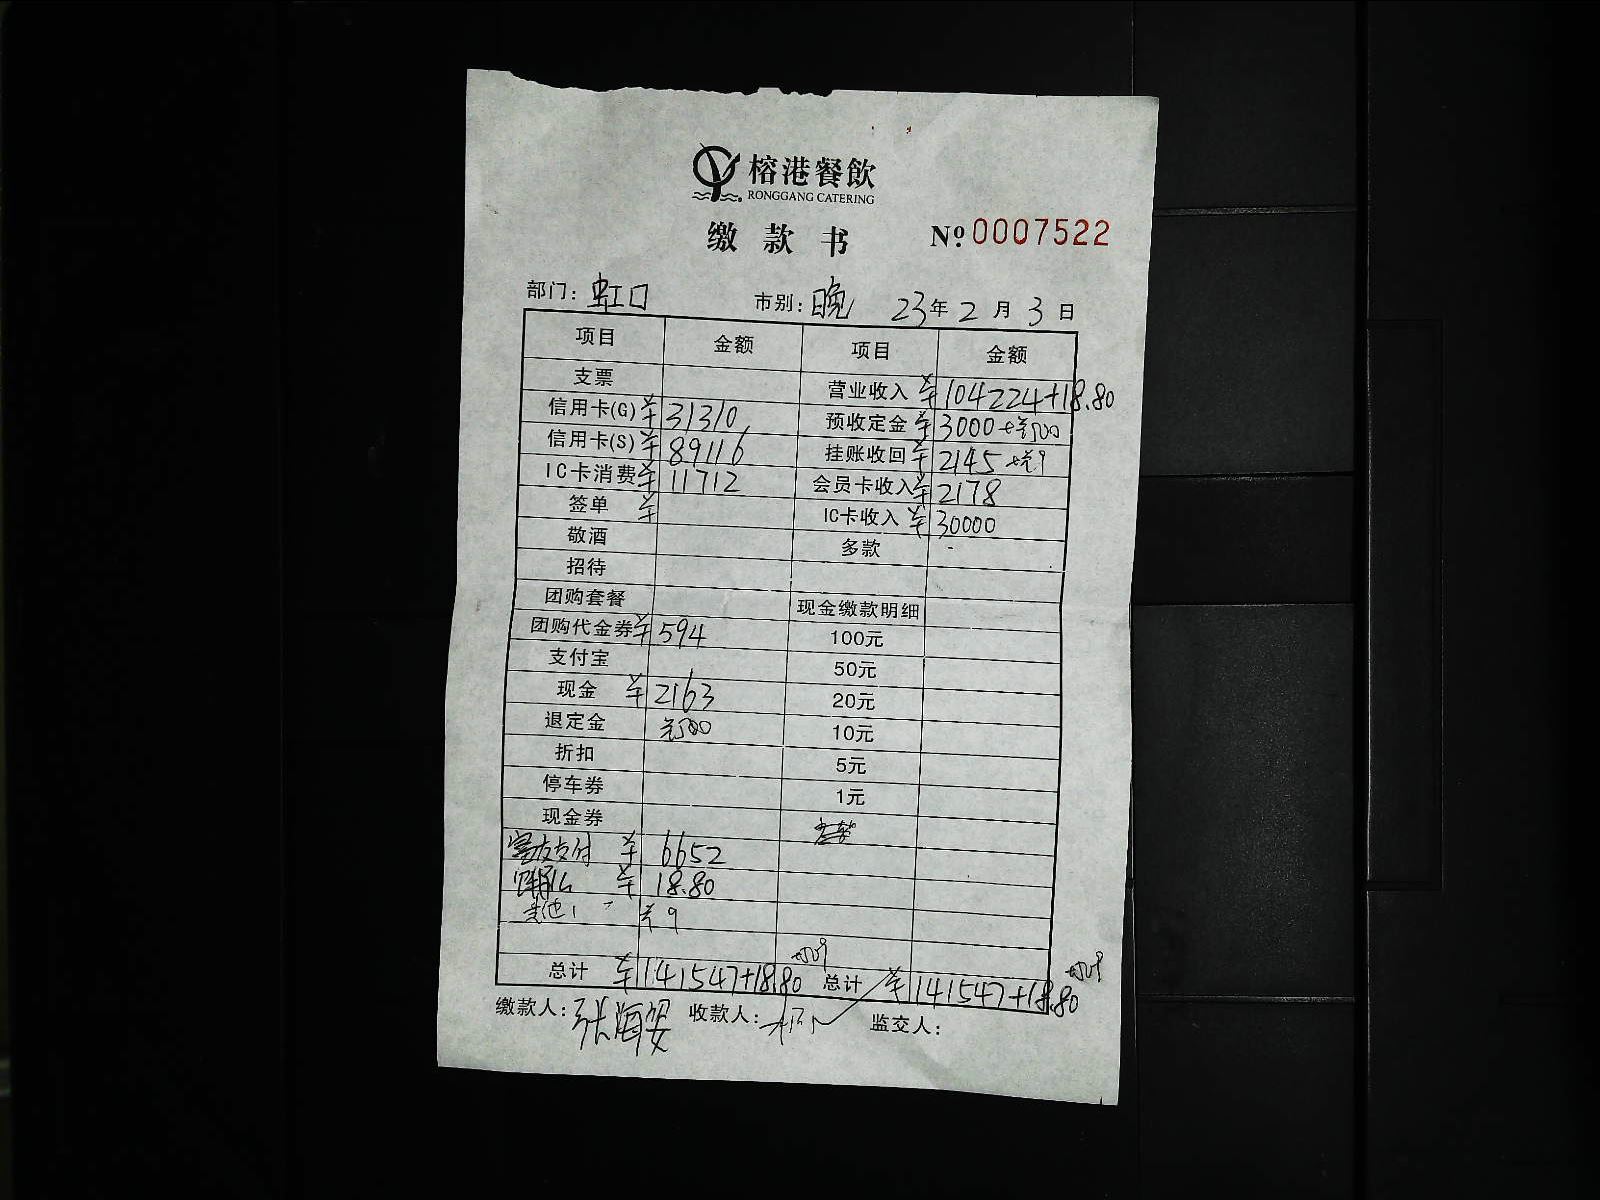 榕港餐飲
RONGGANG CATERING
缴款书 № 0007522
部门: 虹口 市别: 晚 23年2月3日
项目 金额 项目 金额
支票 营业收入 ¥ 104224+18.80
信用卡(G) ¥ 31310 预收定金 ¥ 3000
信用卡(S) ¥ 89116 挂账收回 ¥ 2145
IC卡消费 ¥ 11712 会员卡收入 ¥ 2178
签单 ¥ IC卡收入 ¥ 30000
敬酒 多款 -
招待
团购套餐 现金缴款明细
团购代金券 ¥ 594 100元
支付宝 50元
现金 ¥ 2163 20元
退定金 10元
折扣 5元
停车券 1元
现金券
富友支付 ¥ 6652
饿了么 ¥ 18.80
9
总计 ¥ 141547+18.80 总计 ¥ 141547+18.80
缴款人: 张海安 收款人: 监交人: